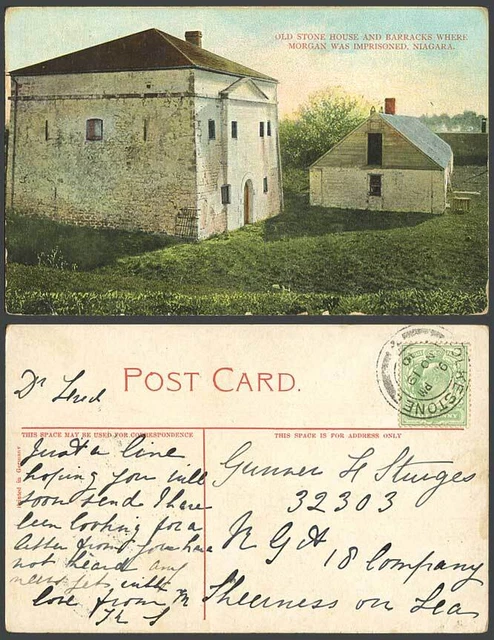 OLD STONE HOUSE AND BARRACKS WHERE
MORGAN WAS IMPRISONED, NIAGARA.
POST CARD.
Dr Fred
THIS SPACE MAY BE USED FOR CORRESPONDENCE
THIS SPACE IS FOR ADDRESS ONLY
Just a line
hoping you will
soon send I have
been looking for a
letter from you have
not heard any
news yet with
love from
Gunner H Sturges
32303
R G A
18 Company
Sheerness on Sea